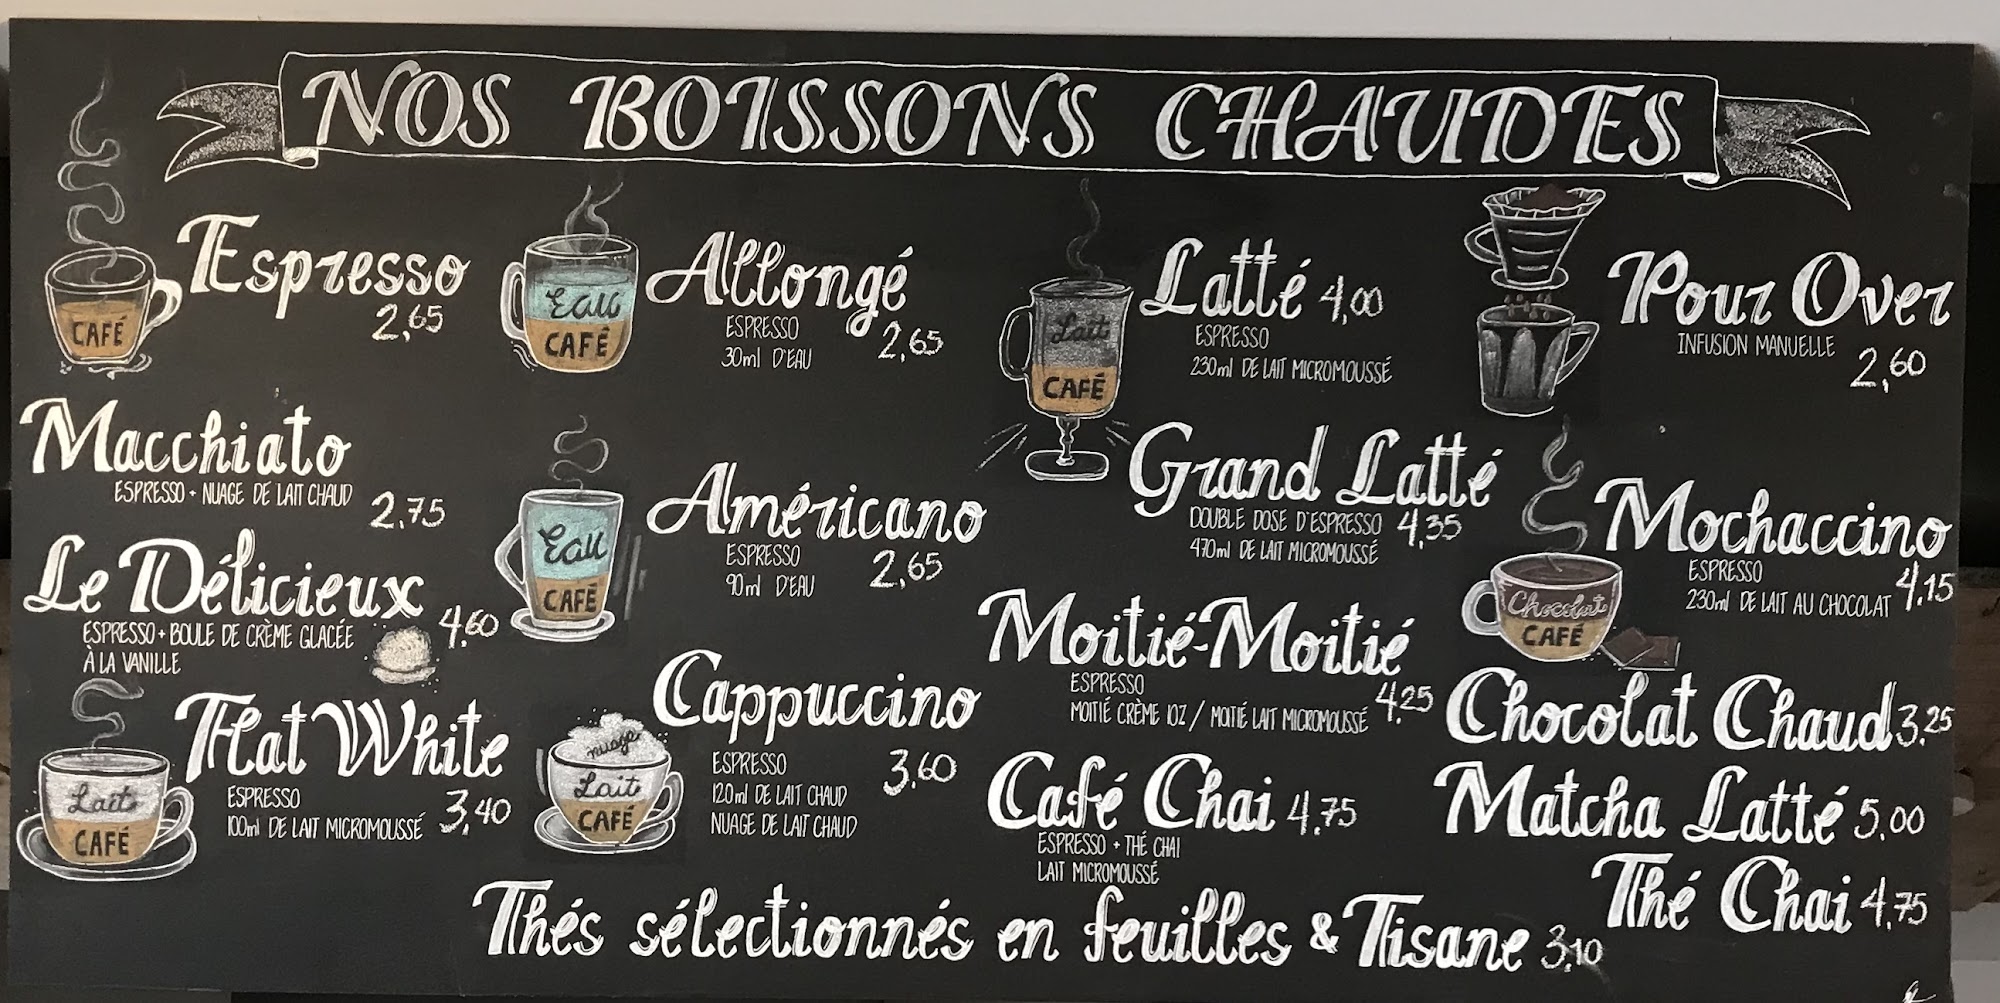 NOS BOISSONS CHAUDES
CAFÉ
Espresso
2,65
Macchiato
ESPRESSO + NUAGE DE LAIT CHAUD
2,75
Le Délicieux
4,60
ESPRESSO + BOULE DE CRÈME GLACÉE
À LA VANILLE
Lait
CAFÉ
Flat White
ESPRESSO
100ml DE LAIT MICROMOUSSÉ
3,40
Eau
CAFÉ
Allongé
ESPRESSO
30ml D'EAU
2,65
Eau
CAFÉ
Américano
ESPRESSO
90ml D'EAU
2,65
nuage
Lait
CAFÉ
Cappuccino
ESPRESSO
120ml DE LAIT CHAUD
NUAGE DE LAIT CHAUD
3,60
Lait
CAFÉ
Latté 4,00
ESPRESSO
230ml DE LAIT MICROMOUSSÉ
Grand Latté
DOUBLE DOSE D'ESPRESSO 4,35
470ml DE LAIT MICROMOUSSÉ
Moitié-Moitié
ESPRESSO
MOITIÉ CRÈME 10Z / MOITIÉ LAIT MICROMOUSSÉ
4,25
Café Chai 4,75
ESPRESSO + THÉ CHAI
LAIT MICROMOUSSÉ
Pour Over
INFUSION MANUELLE
2,60
Chocolat
CAFÉ
Mochaccino
ESPRESSO
230ml DE LAIT AU CHOCOLAT
4,15
Chocolat Chaud 3,25
Matcha Latté 5,00
Thé Chai 4,75
Thés sélectionnés en feuilles & Tisane 3,10